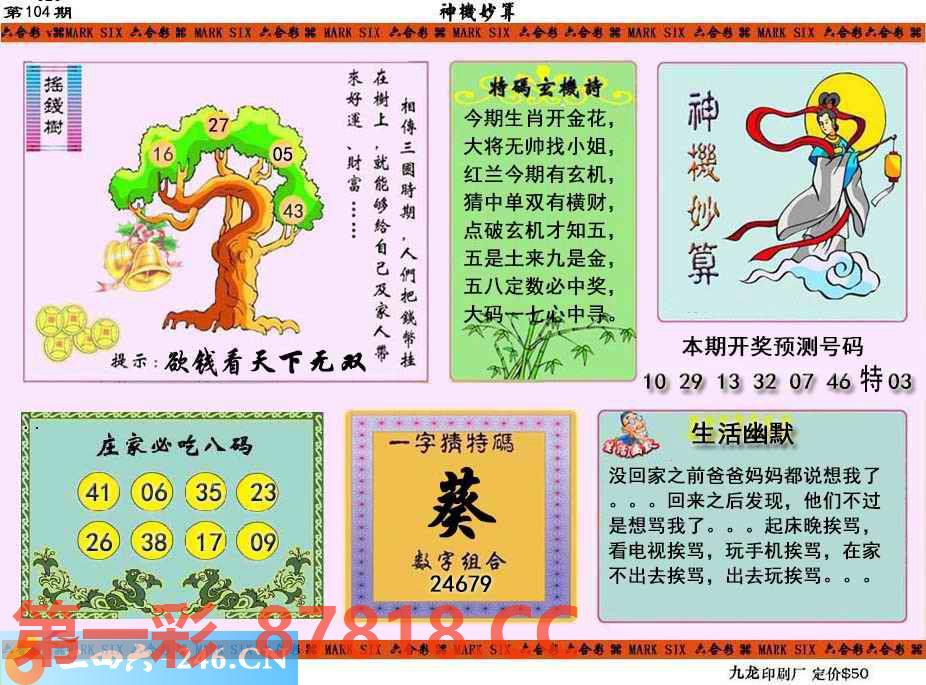 第104期
神機妙算
六合彩 MARK SIX 六合彩 MARK SIX 六合彩 MARK SIX 六合彩 MARK SIX 六合彩 MARK SIX 六合彩 MARK SIX 六合彩 MARK SIX 六合彩
搖錢樹
27
16
05
43
相傳三國時期，人們把錢幣挂
在樹上，就能够给自己及家人帶
來好運、財富……
提示：欲钱看天下无双
特碼玄機詩
今期生肖开金花，
大将无帅找小姐，
红兰今期有玄机，
猜中单双有横财，
点破玄机才知五，
五是土来九是金，
五八定数必中奖，
大码一七心中寻。
神機妙算
本期开奖预测号码
10 29 13 32 07 46 特 03
庄家必吃八码
41 06 35 23
26 38 17 09
一字猜特碼
葵
数字组合
24679
生活幽默
生活幽默
没回家之前爸爸妈妈都说想我了
。。。回来之后发现，他们不过
是想骂我了。。。起床晚挨骂，
看电视挨骂，玩手机挨骂，在家
不出去挨骂，出去玩挨骂。。。
第一彩 87818.CC
二四六4246.CN
MARK SIX 六合彩 MARK SIX 六合彩 MARK SIX 六合彩
九龙印刷厂 定价$50